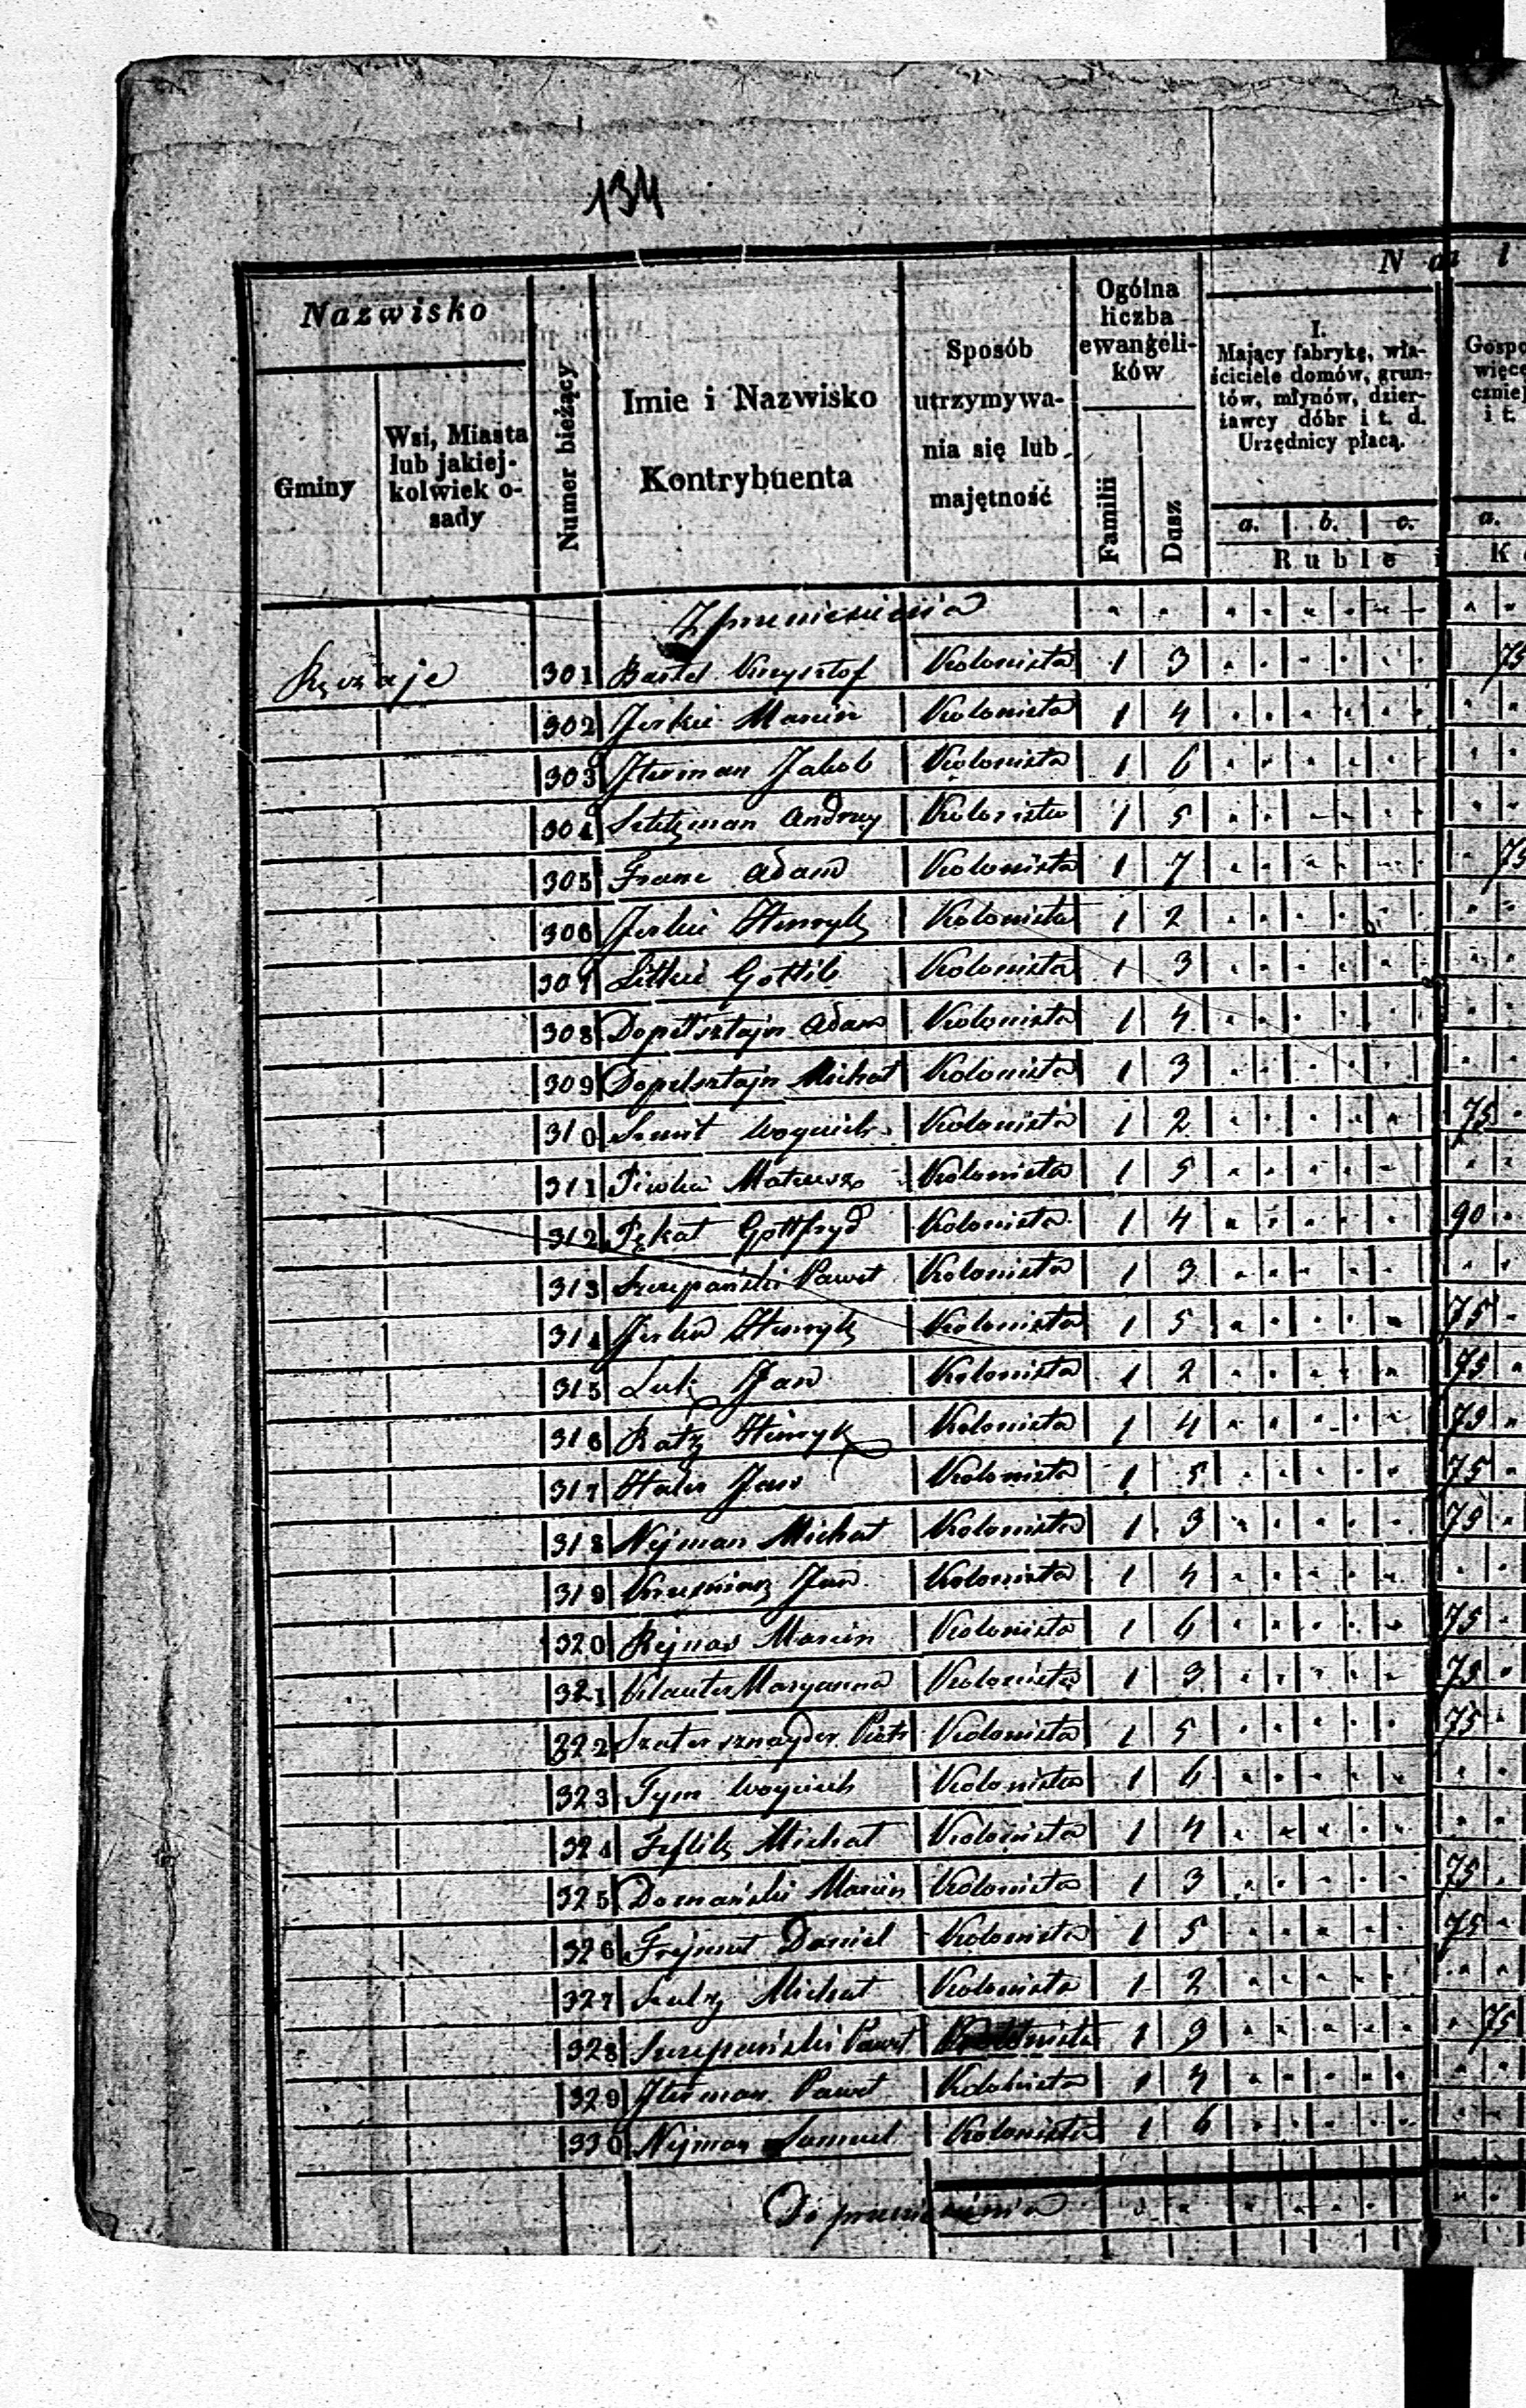 134
Nazwisko
Gminy
Wsi, Miasta lub jakiej- kolwiek o- sady
Numer bieżący
Imie i Nazwisko Kontrybuenta
Sposób utrzymywa- nia się lub majętność
Ogólna liczba ewangeli- ków
Familii
Dusz
N a l
I. Mający fabrykę, wła- ściciele domów, grun- tów, młynów, dzier- żawcy dóbr i t. d. Urzędnicy płacą.
a. b. c.
Ruble i K
Gospo więce cznie i t.
a.
Z przeniesienia
Ręczaje 301 Bartel Krzysztof Kolonista 1 3 75
302 Marcin Kolonista 1 4
303 Jterman Jakob Kolonista 1 6
304 Andrzej Kolonista 1 5
305 Franc Adam Kolonista 1 7 75
306 Henryk Kolonista 1 2
307 Littke Gottlib Kolonista 1 3
308 Dopelsztajn Adam Kolonista 1 4
309 Dopelsztajn Michał Kolonista 1 3
310 Szmit Woyciech Kolonista 1 2 75
311 Mateusz Kolonista 1 5
312 Pękat Gottfryd Kolonista 1 4 90
313 Szczepański Paweł Kolonista 1 3
314 Henryk Kolonista 1 5 75
315 Jan Kolonista 1 2 75
316 Ratz Henryk Kolonista 1 4 75
317 Jan Kolonista 1 5 75
318 Nejman Michał Kolonista 1 3 75
319 Jan Kolonista 1 4
320 Rejnas Marcin Kolonista 1 6 75
321 Maryanna Kolonista 1 3 75
322 Szatersznayder Piotr Kolonista 1 5 75
323 Tym Woyciech Kolonista 1 6
324 Michał Kolonista 1 4
325 Doznański Marcin Kolonista 1 3 75
326 Frejmut Daniel Kolonista 1 5 75
327 Szulz Michał Kolonista 1 2
328 Szczepański Paweł Kolonista 1 9 75
329 Jterman Paweł Kolonista 1 4
330 Nejman Samuel Kolonista 1 6
Do przeniesienia